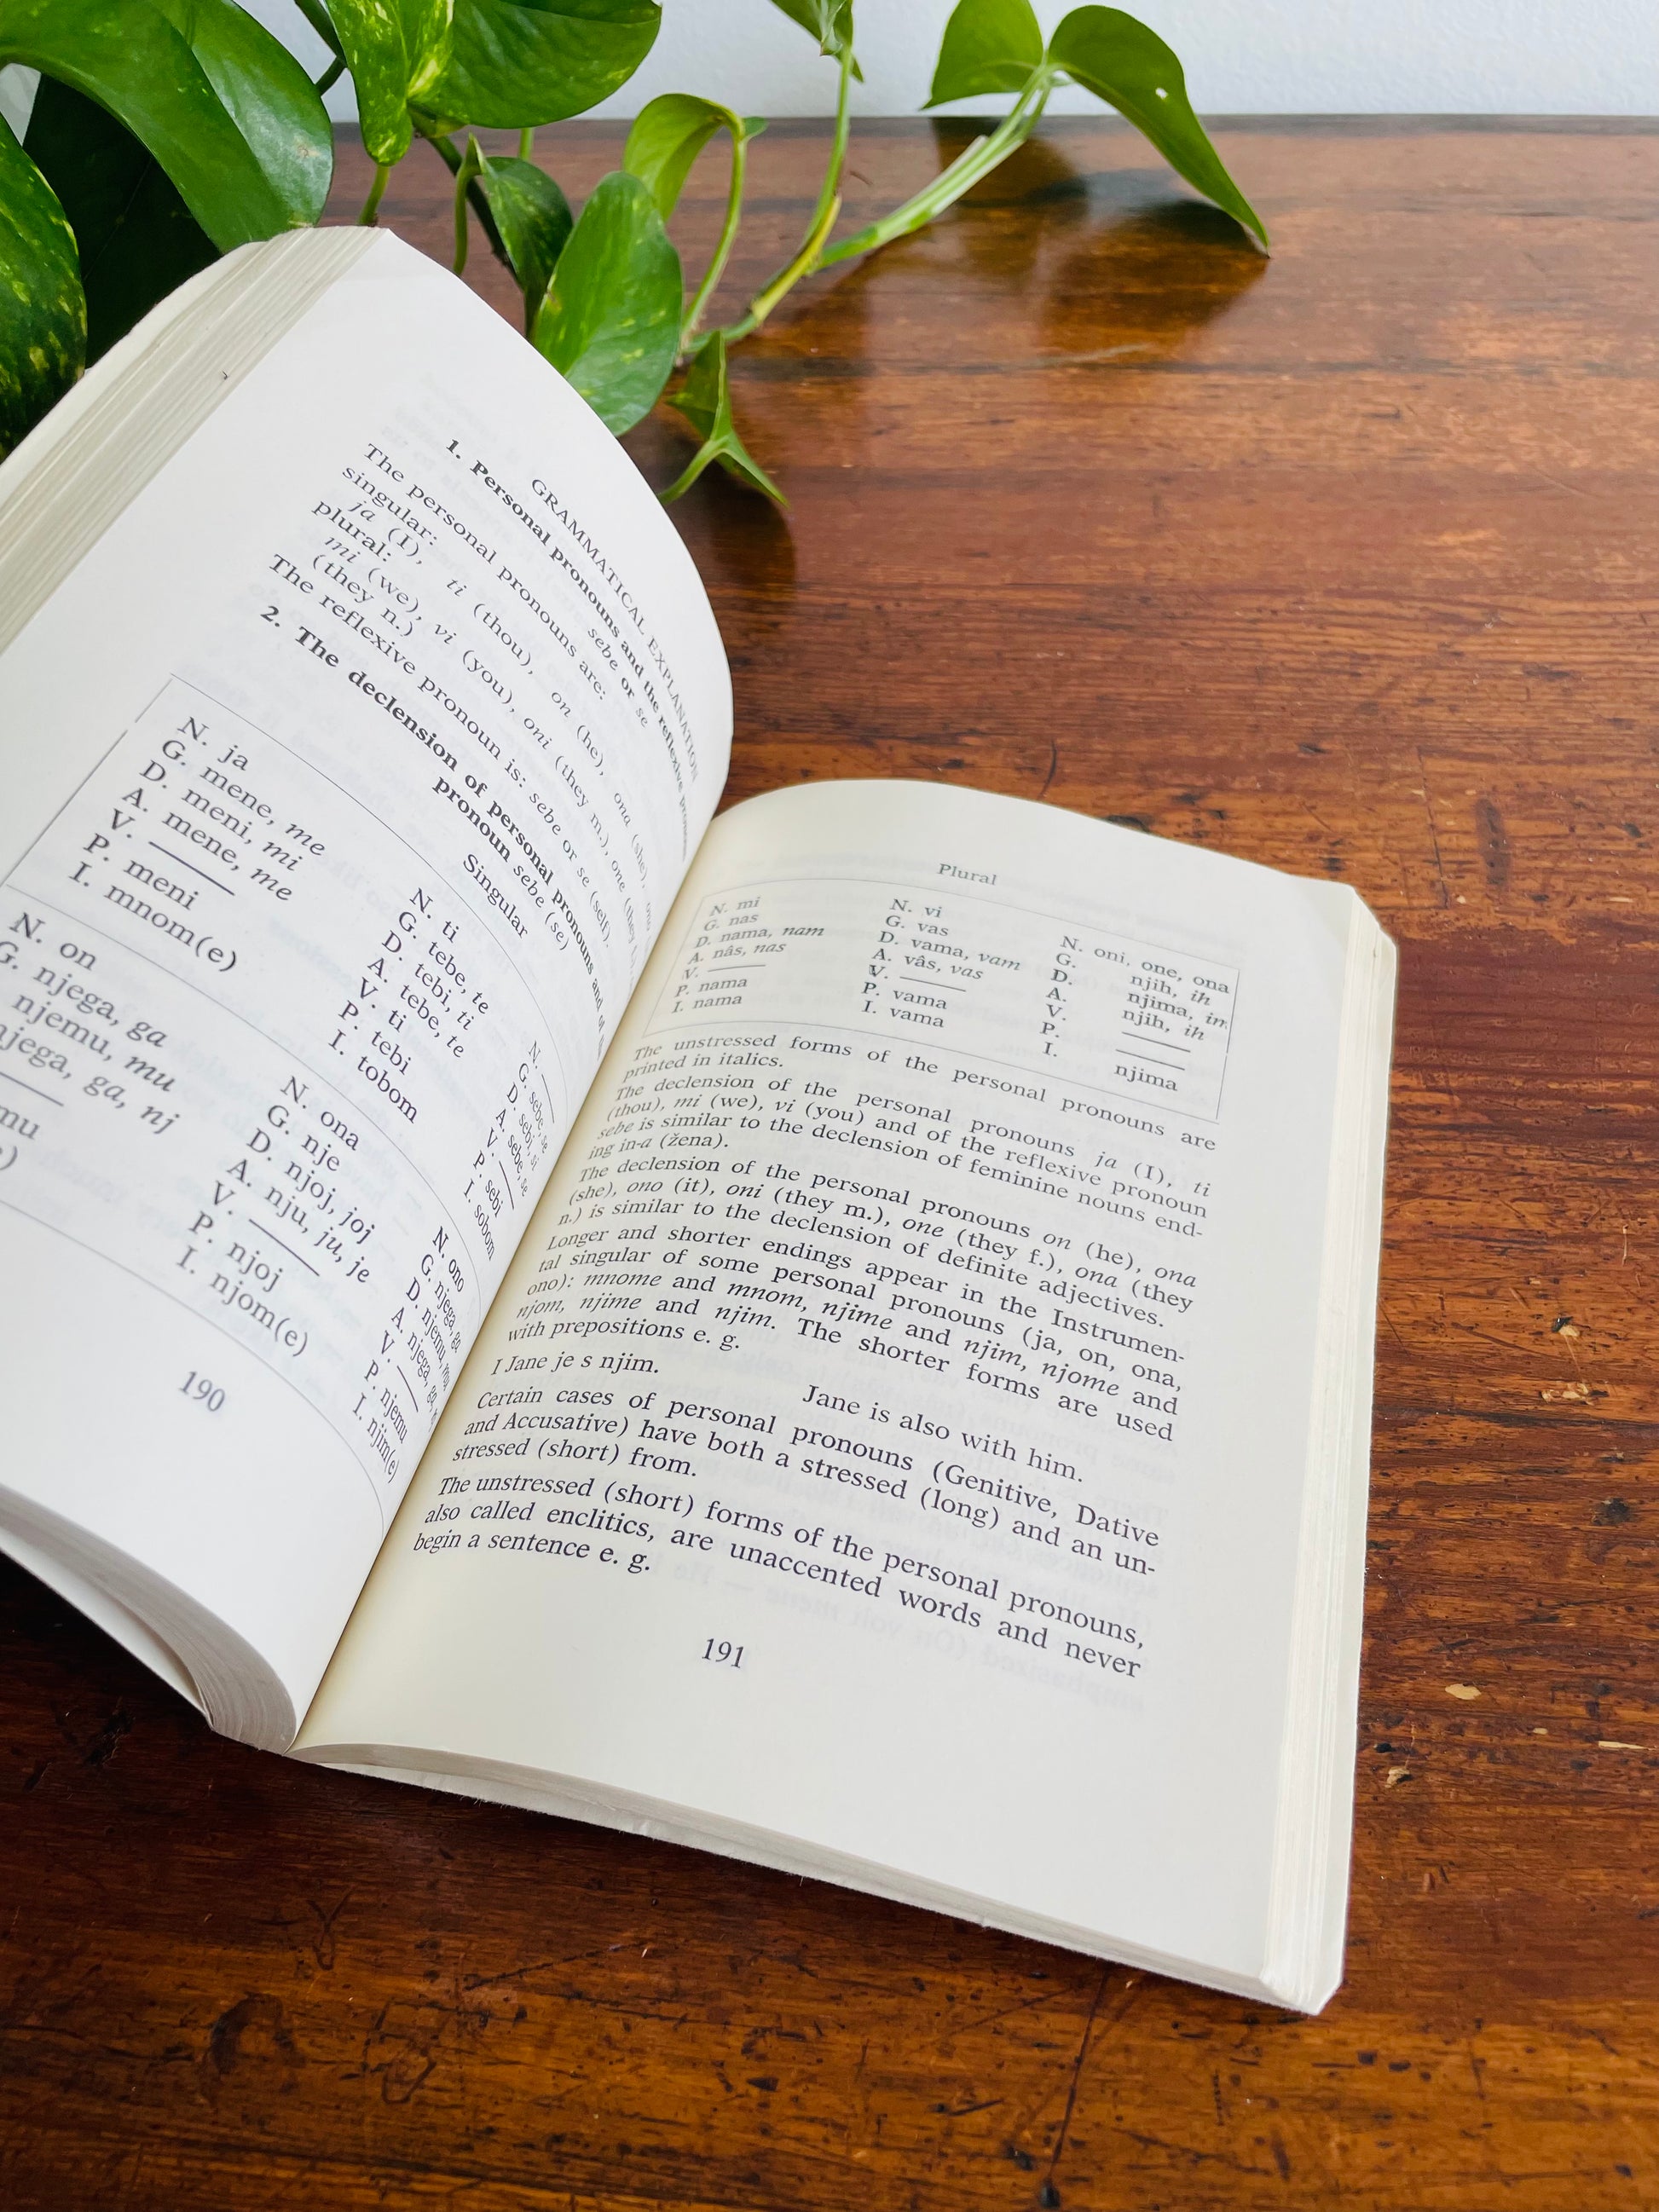 GRAMMATICAL EXPLANATION
1. Personal pronouns and the reflexive pronoun
sebe or se
The personal pronouns are:
singular:
ja (I), ti (thou), on (he), ona (she),
plural:
mi (we), vi (you), oni (they m.), one (they
(they n.)
The reflexive pronoun is: sebe or se (self).
2. The declension of personal pronouns and of the
pronoun sebe (se)
Singular
N. ja
G. mene, me
D. meni, mi
A. mene, me
V. ———
P. meni
I. mnom(e)
N. ti
G. tebe, te
D. tebi, ti
A. tebe, te
V. ti
P. tebi
I. tobom
N. ———
G. sebe, se
D. sebi, si
A. sebe, se
V. ———
P. sebi
I. sobom
N. on
G. njega, ga
njemu, mu
njega, ga, nj
———
mu
)
N. ona
G. nje
D. njoj, joj
A. nju, ju, je
V. ———
P. njoj
I. njom(e)
N. ono
G. njega, ga
D. njemu, mu
A. njega, ga,
V. ———
P. njemu
I. njim(e)
190
Plural
N. mi
G. nas
D. nama, nam
A. nâs, nas
V. ———
P. nama
I. nama
N. vi
G. vas
D. vama, vam
A. vâs, vas
V. ———
P. vama
I. vama
N. oni, one, ona
G. njih, ih
D. njima, im
A. njih, ih
V. ———
P. ———
I. njima
The unstressed forms of the personal pronouns are
printed in italics.
The declension of the personal pronouns ja (I), ti
(thou), mi (we), vi (you) and of the reflexive pronoun
sebe is similar to the declension of feminine nouns end-
ing in-a (žena).
The declension of the personal pronouns on (he), ona
(she), ono (it), oni (they m.), one (they f.), ona (they
n.) is similar to the declension of definite adjectives.
Longer and shorter endings appear in the Instrumen-
tal singular of some personal pronouns (ja, on, ona,
ono): mnome and mnom, njime and njim, njome and
njom, njime and njim. The shorter forms are used
with prepositions e. g.
I Jane je s njim. Jane is also with him.
Certain cases of personal pronouns (Genitive, Dative
and Accusative) have both a stressed (long) and an un-
stressed (short) from.
The unstressed (short) forms of the personal pronouns,
also called enclitics, are unaccented words and never
begin a sentence e. g.
191